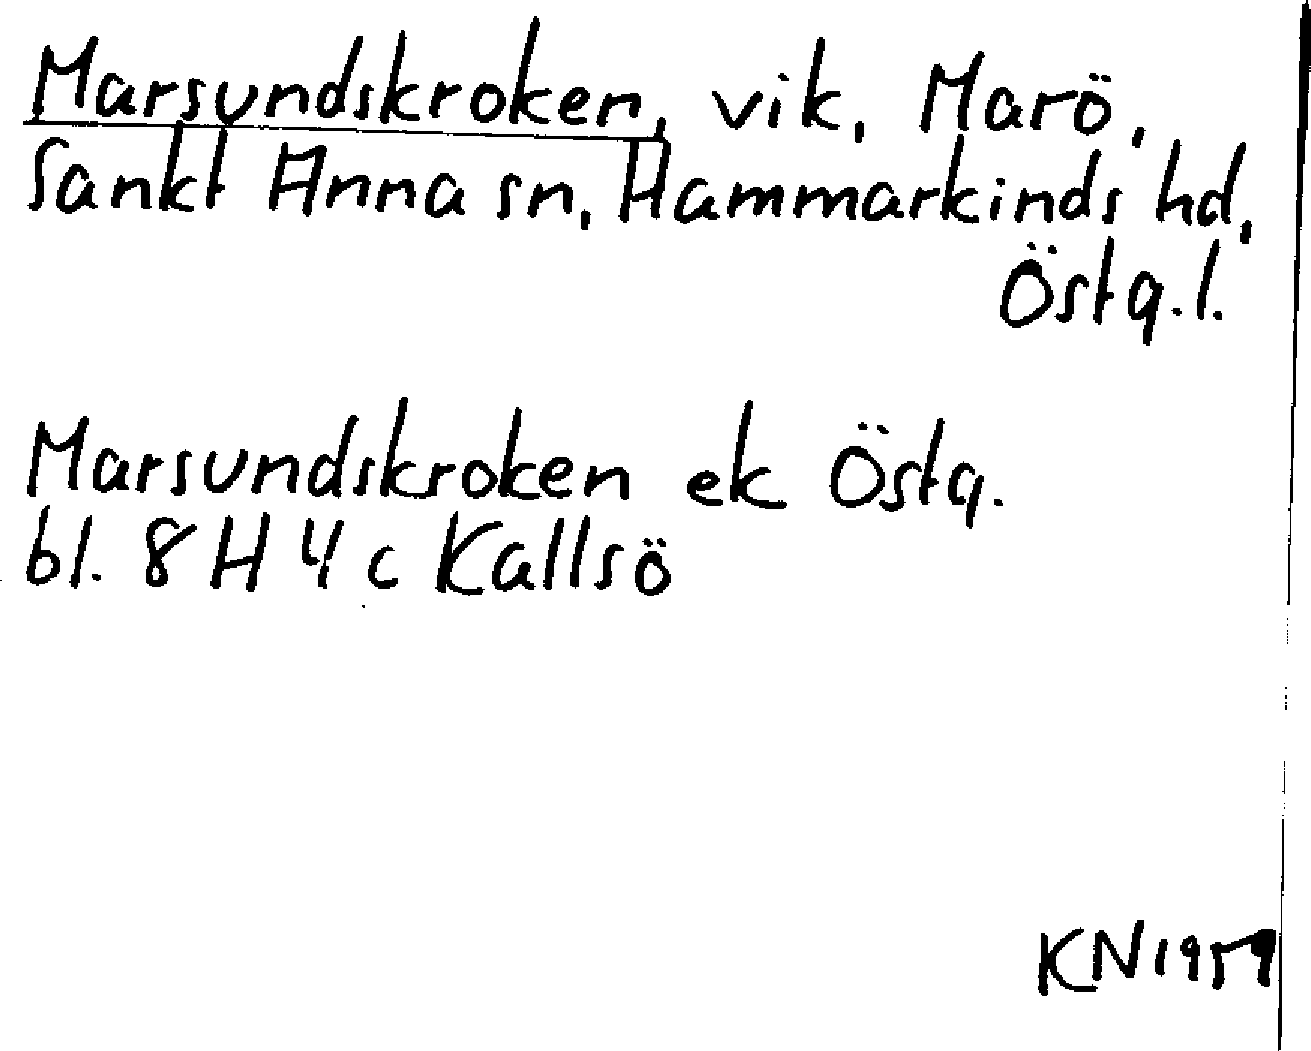 Marsundskroken, vik, Marö,
Sankt Anna sn, Hammarkinds hd,
Östg.l.
Marsundskroken ek Östg.
bl. 8 H 4 c Kallsö
KN 1959